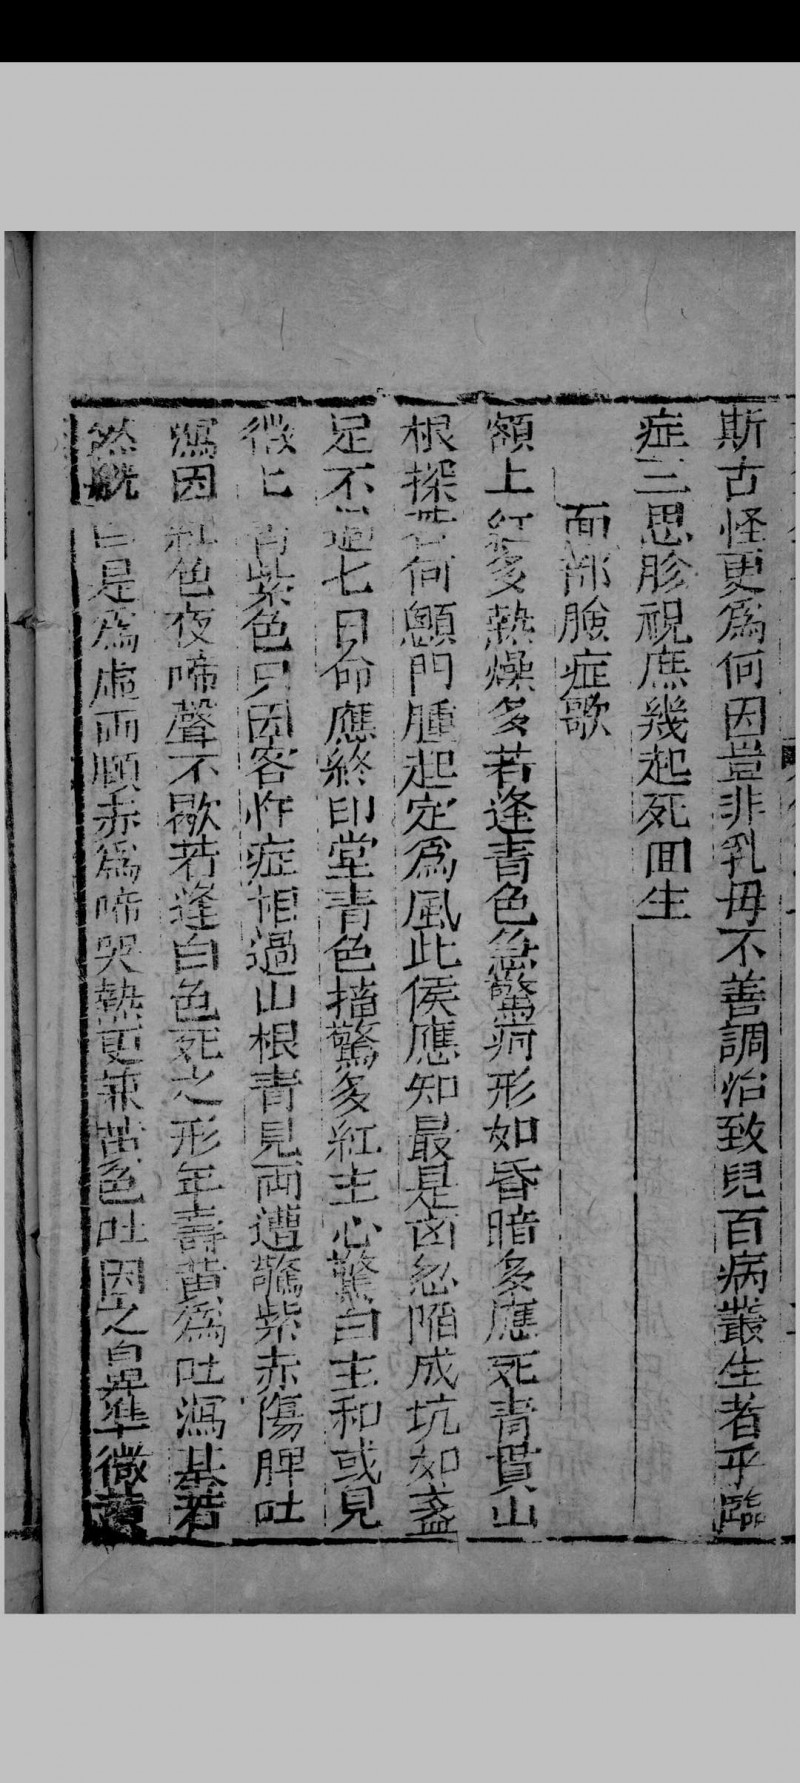 斯古怪更為何因豈非乳母不善調治致兒百病叢生者乎臨
症三思胗視庶幾起死回生
面部臉症歌
額上紅多熱燥多若逢青色急驚疴形如昏暗多應死青貫山
根探若何顖門腫起定為風此候應知最是凶忽陷成坑如盞
足不過七日命應終印堂青色搐驚多紅主心驚白主和或見
微七青紫色只因客忤症相過山根青見両遭驚紫赤傷脾吐
瀉因紅色夜啼聲不歇若逢白色死之形年壽黃為吐瀉甚若
然 白是為虛両顋赤為啼哭熱更兼 色吐因之 準微黃